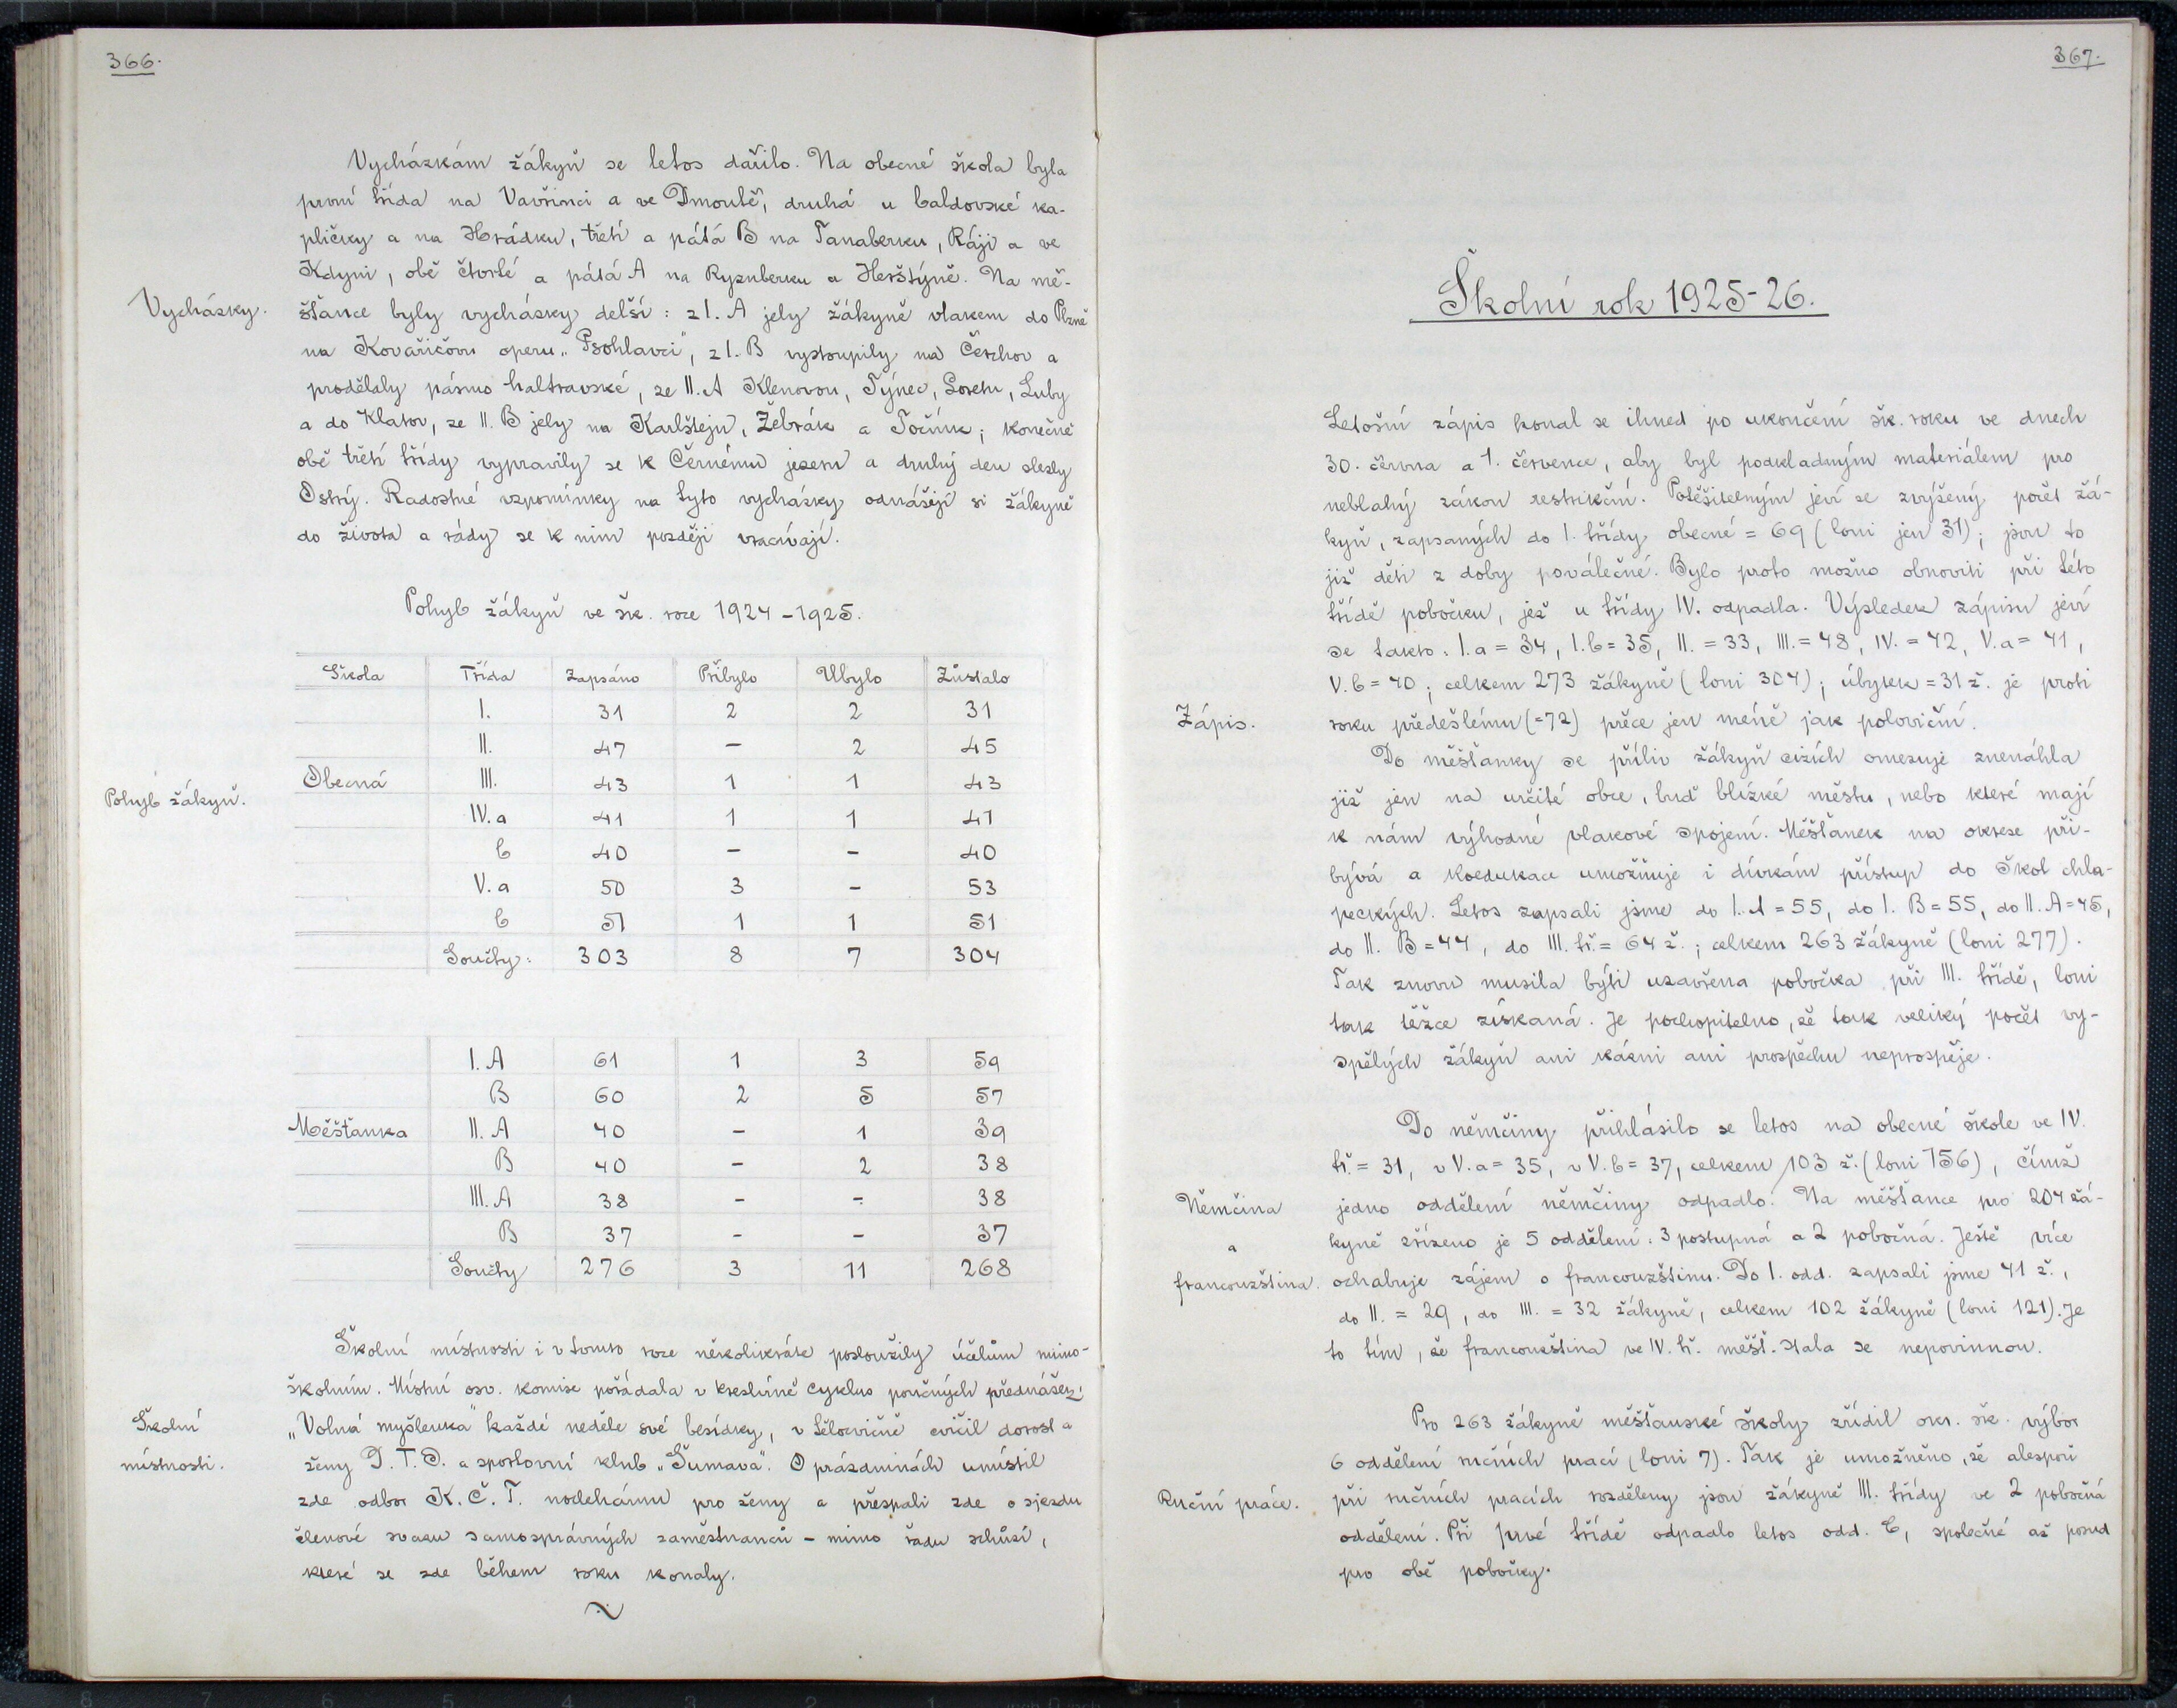 366.
Vycházkám žákyň se letos dařilo. Na obecné škola byla
první třída na Vavřinci a ve Dmoutě, druhá u baldovské ka-
pličky a na Hrádku, třetí a pátá B na Tanaberku, Ráji a ve
Kdyni, obě čtvrté a pátá A na Ryznberku a Herštýně. Na mě-
Vycházky.
šťance byly vycházky delší: z I. A jely žákyně vlakem do Plzně
na Kovařičovu operu „Psohlavci", z I. B vystoupily na Čerchov a
prodělaly pásmo haltravské, ze II. A Klenovou, Týnec, Loretu, Luby
a do Klatov, ze II. B jely na Karlštejn, Žebrák a Točník; konečně
obě třetí třídy vypravily se k Černému jezeru a druhý den slezly
Ostrý. Radostné vzpomínky na tyto vycházky odnášejí si žákyně
do života a rády se k nim později vracívají.
Pohyb žákyň ve šk. roce 1924-1925.
Škola Třída Zapsáno Přibylo Ubylo Zůstalo
I. 31 2 2 31
II. 47 – 2 45
Obecná III. 43 1 1 43
Pohyb žákyň.
IV. a 41 1 1 41
b 40 – – 40
V. a 50 3 – 53
b 51 1 1 51
Součty: 303 8 7 304
I. A 61 1 3 59
B 60 2 5 57
Měšťanka II. A 40 – 1 39
B 40 – 2 38
III. A 38 – – 38
B 37 – – 37
Součty 276 3 11 268
Školní místnosti i v tomto roce několikráte posloužily účelům mimo-
školním. Místní osv. komise pořádala v kreslírně cyklus poučných přednášek;
Školní
„Volná myšlenka" každé neděle své besídky, v tělocvičně cvičil dorost a
místnosti.
ženy D. T. J. a sportovní klub „Šumava". O prázdninách umístil
zde odbor K. Č. T. noclehárnu pro ženy a přespali zde o sjezdu
členové svazu samosprávných zaměstnanců – mimo řadu schůzí,
které se zde během roku konaly.
367.
Školní rok 1925-26.
Letošní zápis konal se ihned po ukončení šk. roku ve dnech
30. června a 1. července, aby byl podkladným materiálem pro
neblahý zákon restrikční. Potěšitelným jeví se zvýšený počet žá-
kyň, zapsaných do I. třídy obecné = 69 (loni jen 31); jsou to
již děti z doby poválečné. Bylo proto možno obnoviti při této
třídě pobočku, jež u třídy IV. odpadla. Výsledek zápisu jeví
se takto: I. a = 34, I. b = 35, II. = 33, III. = 48, IV. = 42, V. a = 41,
V. b = 40; celkem 273 žákyně (loni 304); úbytek = 31 ž. je proti
Zápis.
roku předešlému (=72) přece jen méně jak poloviční.
Do měšťanky se příliv žákyň cizích omezuje znenáhla
již jen na určité obce, buď blízké městu, nebo které mají
k nám výhodné vlakové spojení. Měšťanek na okrese při-
bývá a koedukace umožňuje i dívkám přístup do škol chla-
peckých. Letos zapsali jsme do I. A = 55, do I. B = 55, do II. A = 45,
do II. B = 44, do III. tř. = 64 ž.; celkem 263 žákyně (loni 277).
Tak znovu musila býti uzavřena pobočka při III. třídě, loni
tak těžce získaná. Je pochopitelno, že tak veliký počet vy-
spělých žákyň ani kázni ani prospěchu neprospěje.
Do němčiny přihlásilo se letos na obecné škole ve IV.
tř. = 31, v V. a = 35, v V. b = 37, celkem 103 ž. (loni 156), čímž
Němčina
jedno oddělení němčiny odpadlo. Na měšťance pro 204 žá-
a
kyně zřízeno je 5 oddělení: 3 postupná a 2 pobočná. Ještě více
francouzština.
ochabuje zájem o francouzštinu. Do I. odd. zapsali jsme 41 ž.,
do II. = 29, do III. = 32 žákyně, celkem 102 žákyně (loni 121). Je
to tím, že francouzština ve IV. tř. měšť. stala se nepovinnou.
Pro 263 žákyně měšťanské školy zřídil okr. šk. výbor
6 oddělení ručních prací (loni 7). Tak je umožněno, že alespoň
Ruční práce.
při ručních pracích rozděleny jsou žákyně III. třídy ve 2 pobočná
oddělení. Při prvé třídě odpadlo letos odd. C, společné až posud
pro obě pobočky.